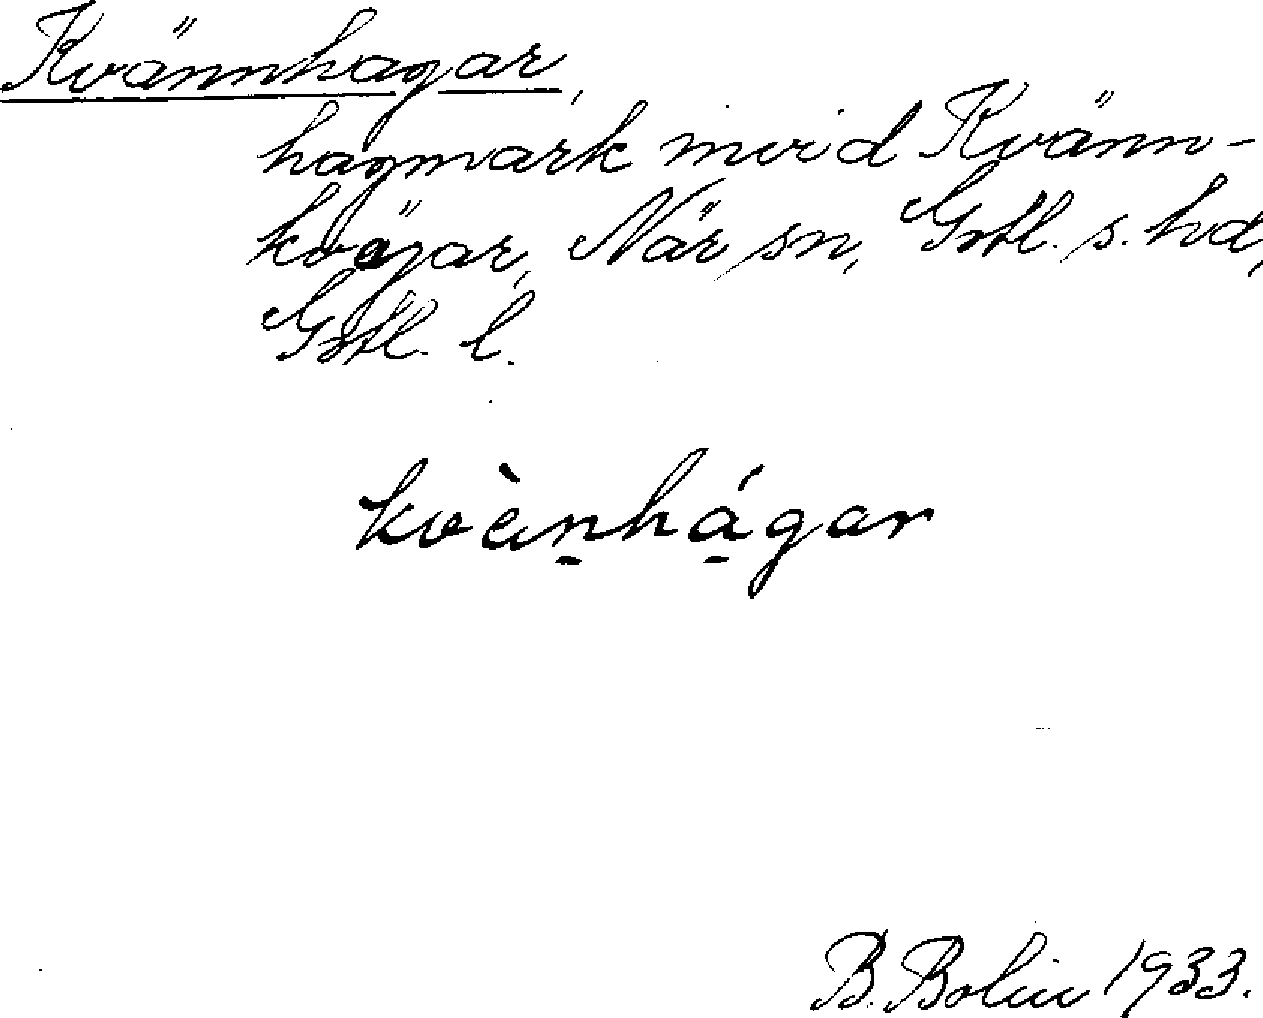 Kvännhagar,
hagmark invid Kvänn-
kväjar, När sn, Gotl. s. hd,
Gotl. l.
kvèn̠há̠gar
B. Bolin 1933.